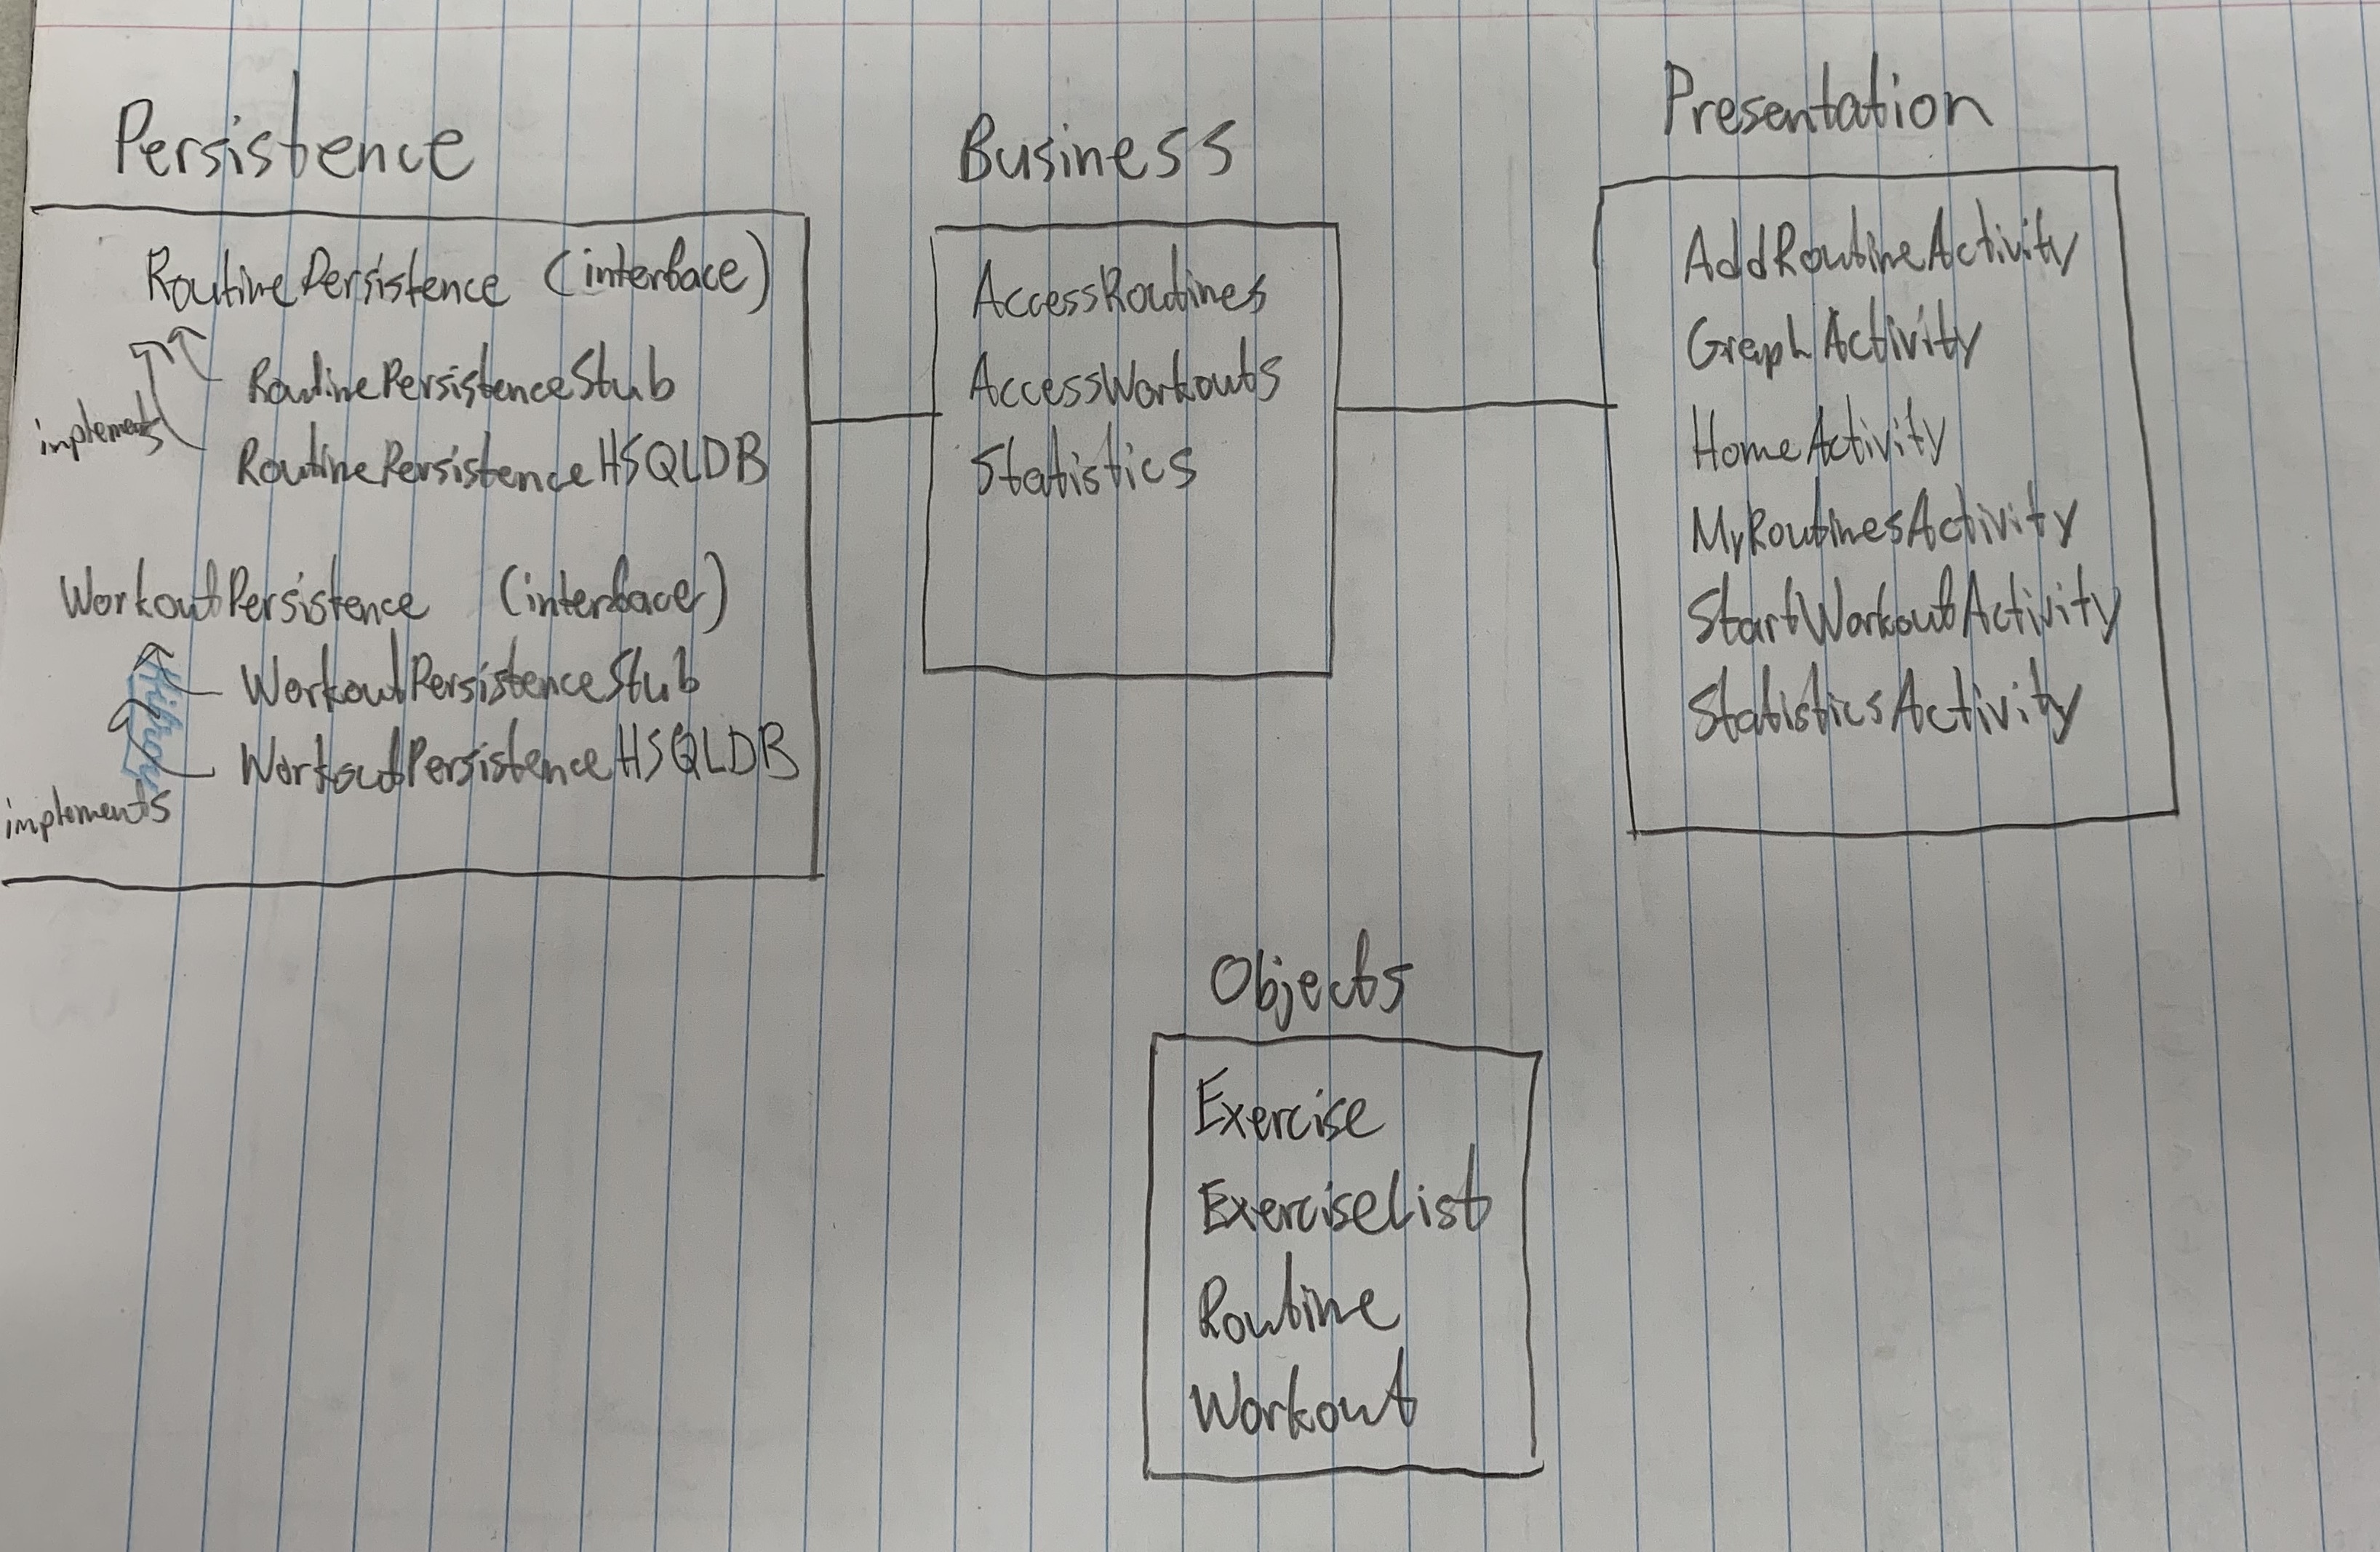 Persistence
RoutinePersistence (interface)
RoutinePersistenceStub
implements
RoutinePersistenceHSQLDB
WorkoutPersistence (interface)
WorkoutPersistenceStub
Hilroy
WorkoutPersistenceHSQLDB
implements
Business
AccessRoutines
AccessWorkouts
Statistics
Presentation
AddRoutineActivity
GraphActivity
HomeActivity
MyRoutinesActivity
StartWorkoutActivity
StatisticsActivity
Objects
Exercise
ExerciseList
Routine
Workout